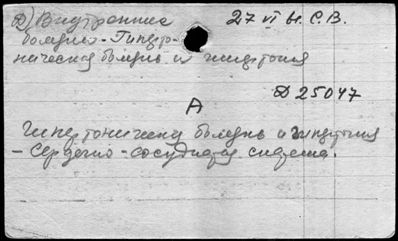 Д) Внутренние 27 VI н.С.В.
болезни - Гиперто-
ническая болезнь и гипотония
Д 25047
А
Гипертоническая болезнь и гипотония
- Сердечно-сосудистая система.